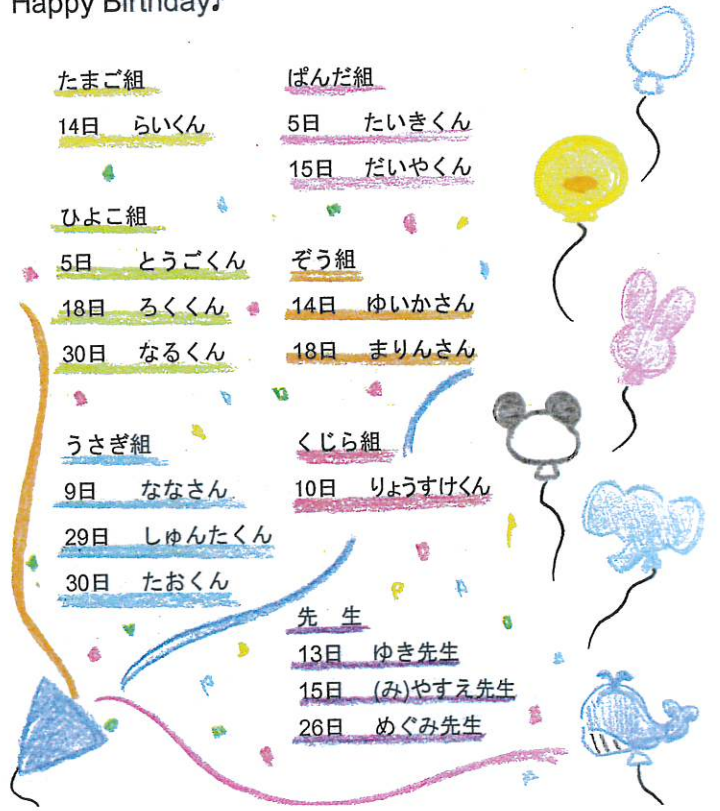 Happy Birthday♪
たまご組
14日 らいくん
ひよこ組
5日 とうごくん
18日 ろくくん
30日 なるくん
うさぎ組
9日 ななさん
29日 しゅんたくん
30日 たおくん
ぱんだ組
5日 たいきくん
15日 だいやくん
ぞう組
14日 ゆいかさん
18日 まりんさん
くじら組
10日 りょうすけくん
先 生
13日 ゆき先生
15日 (み)やすえ先生
26日 めぐみ先生